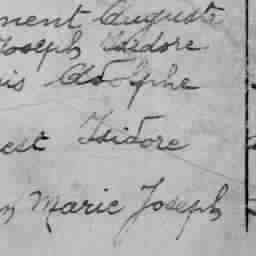 ment Auguste
Joseph Isidore
is Adolphe
est Isidore
n Marie Joseph